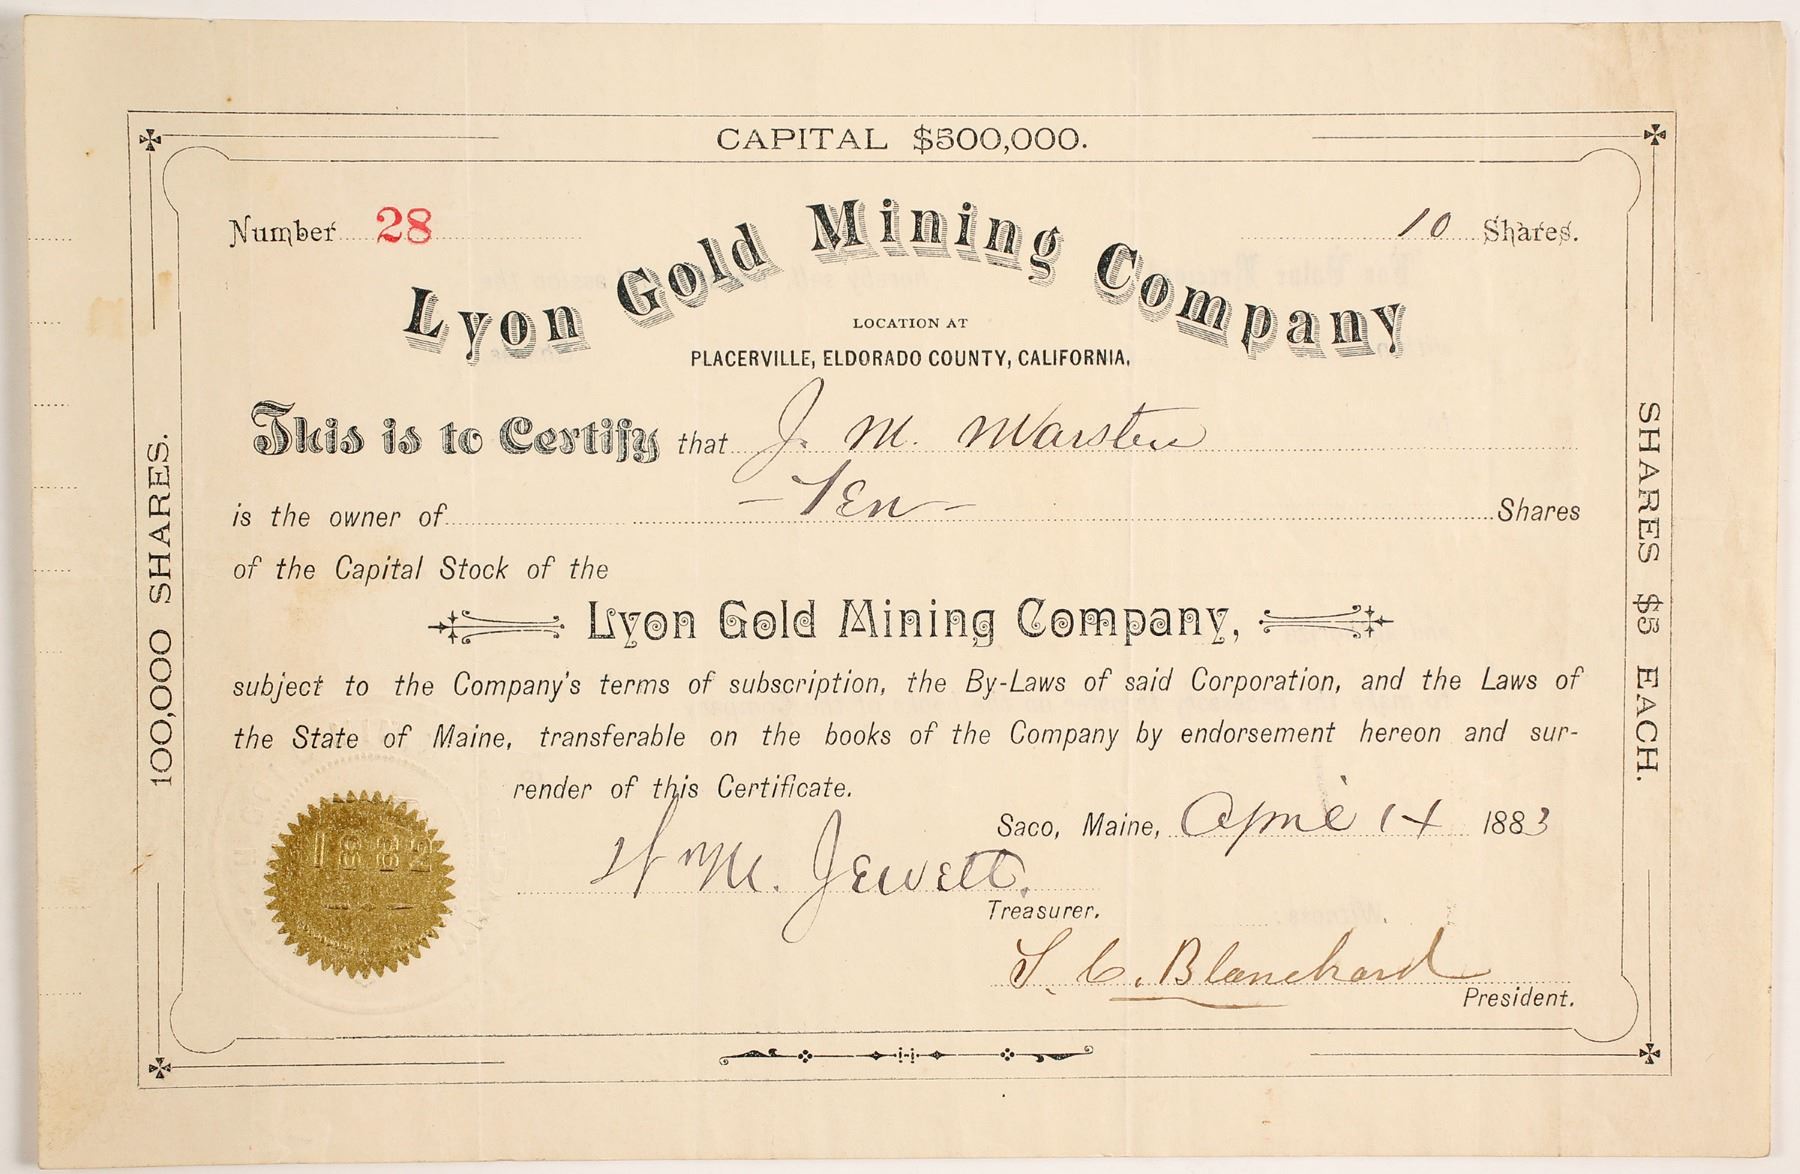 CAPITAL $500,000.
Number 28
10 Shares.
Lyon Gold Mining Company
LOCATION AT
PLACERVILLE, ELDORADO COUNTY, CALIFORNIA.
This is to Certify that J. M. Marsten
is the owner of -Ten- Shares
of the Capital Stock of the
Lyon Gold Mining Company,
subject to the Company's terms of subscription, the By-Laws of said Corporation, and the Laws of
the State of Maine, transferable on the books of the Company by endorsement hereon and sur-
render of this Certificate.
Saco, Maine, April 14 1883
Wm M. Jewett.
Treasurer.
S. C. Blanchard
President.
100,000 SHARES.
SHARES $5 EACH.
1882